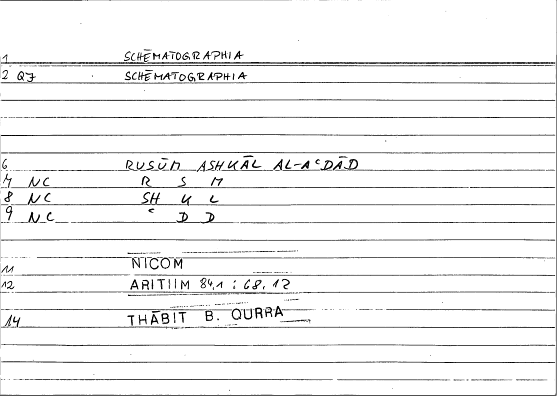 1 SCHĒMATOGRAPHIA
2 QJ SCHĒMATOGRAPHIA
6 RUSŪM ASHKĀL AL-AʿDĀD
7 NC R S M
8 NC SH K L
9 NC ʿ D D
11 NICOM
12 ARITIIM 84,1 ; 68,12
14 THĀBIT B. QURRA